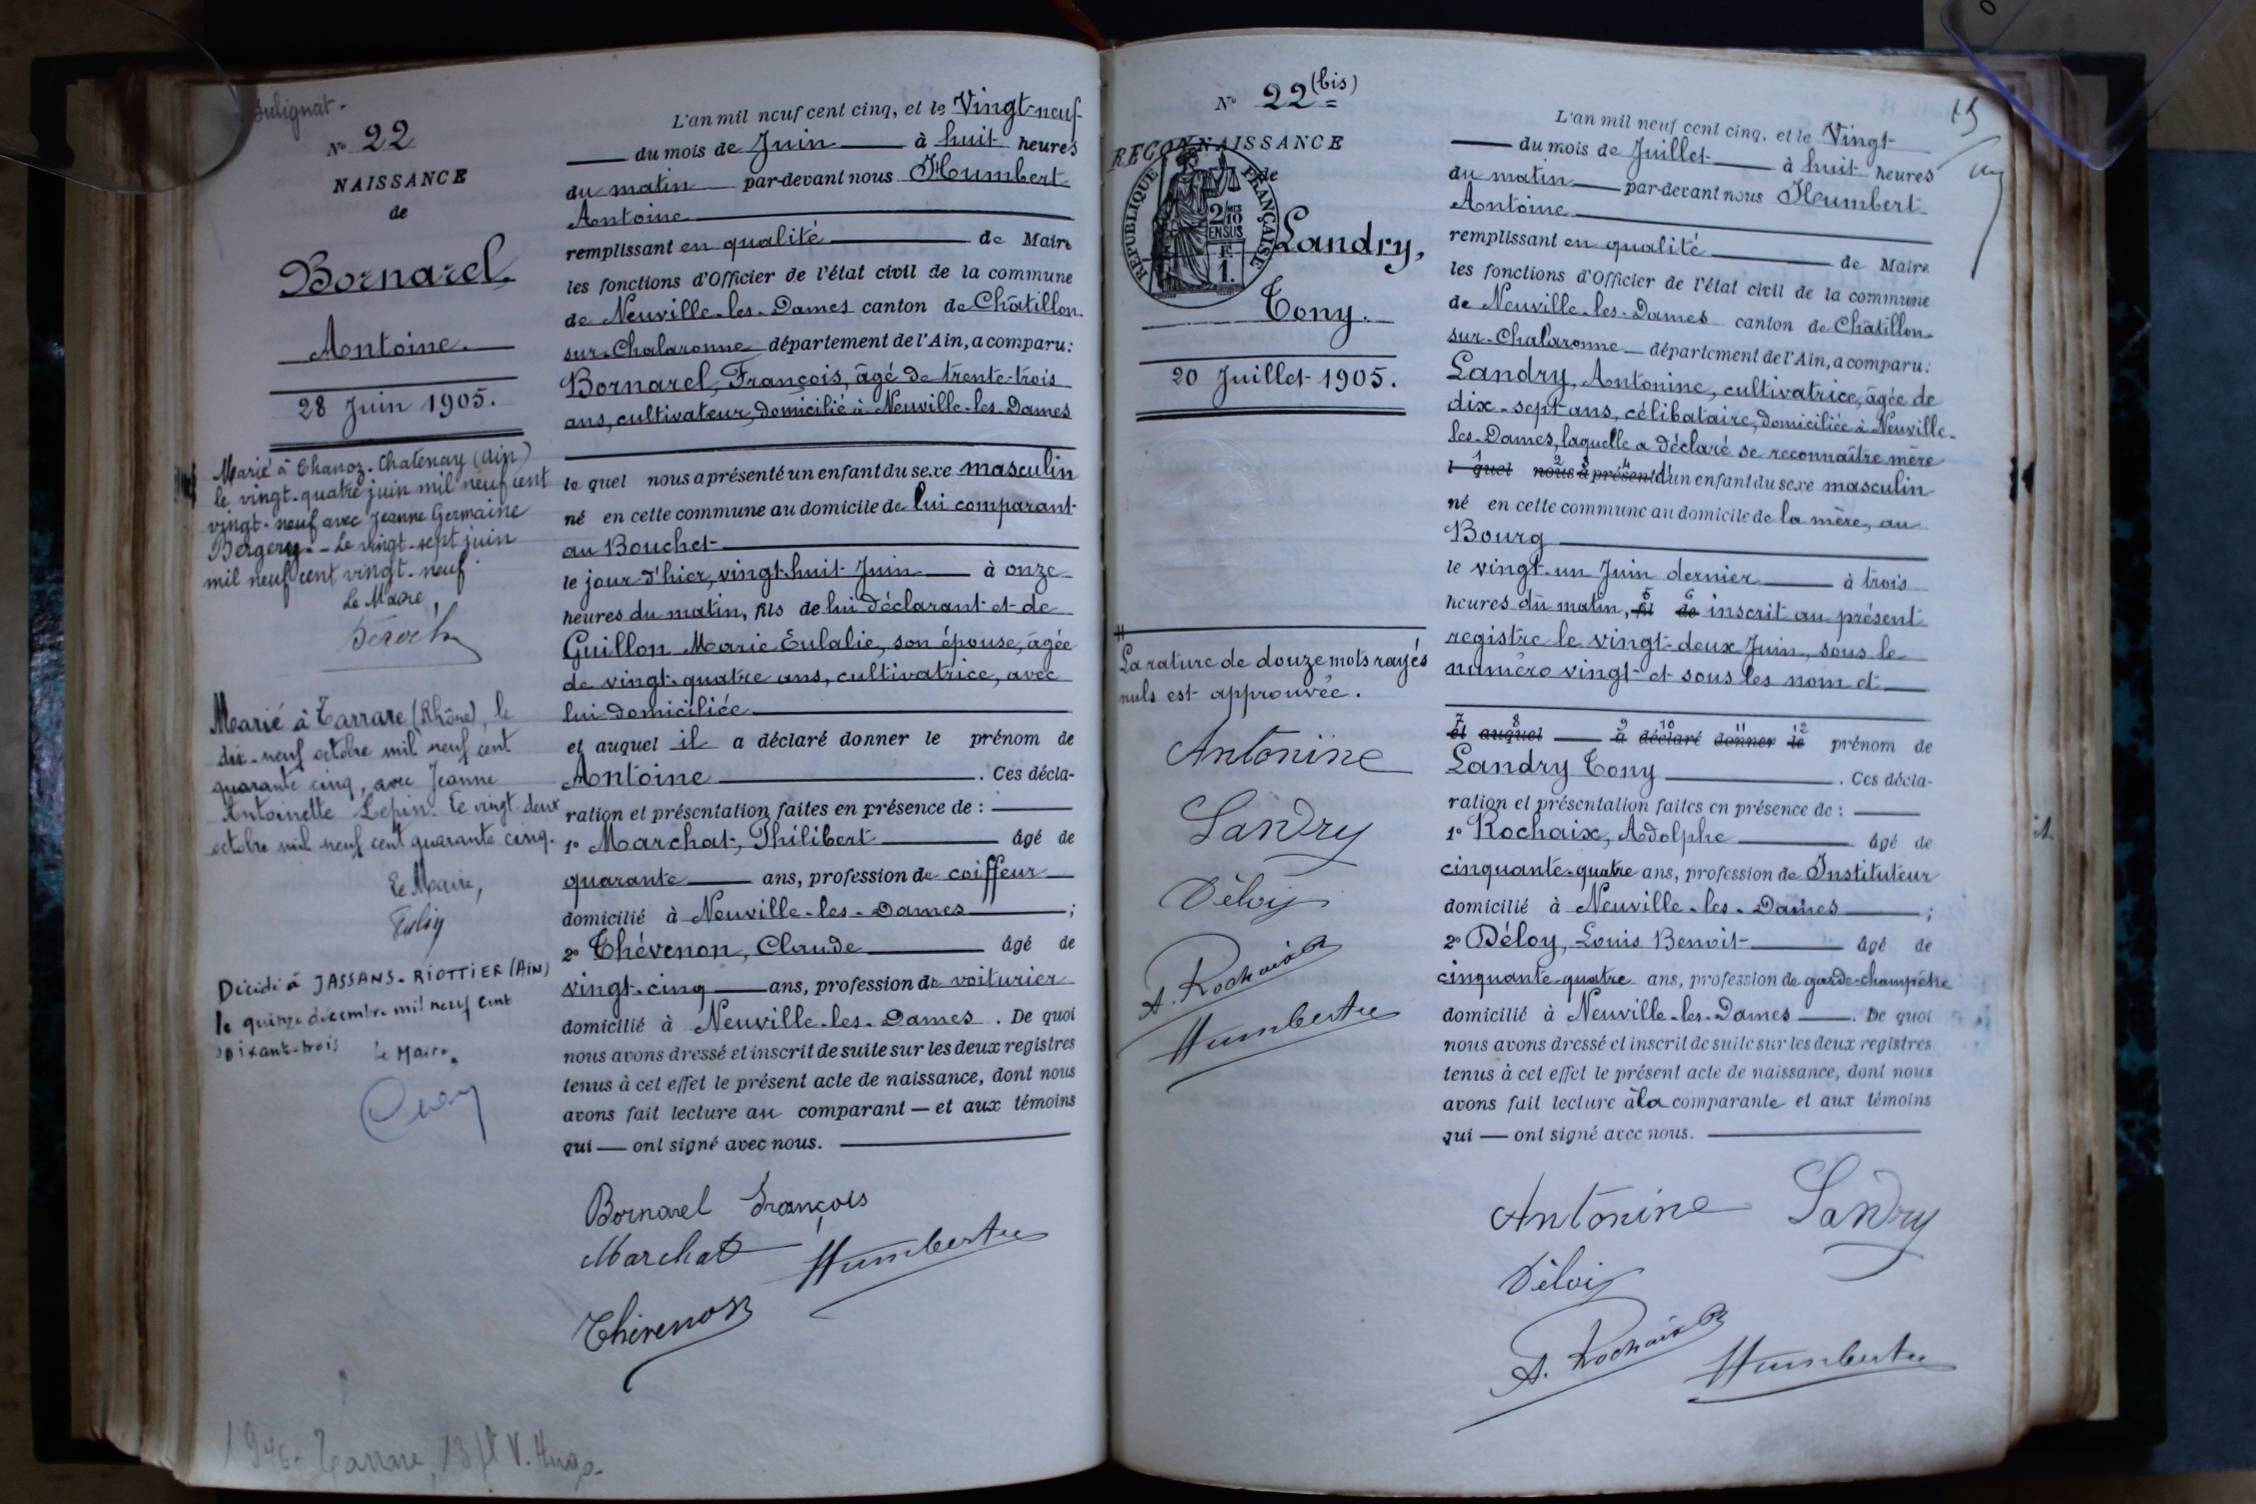 Sulignat.
No 22
NAISSANCE
de
Bornarel
Antoine.
28 Juin 1905.
Marié à Chanoz-Chatenay (Ain)
le vingt-quatre juin mil neuf cent
vingt-neuf avec Jeanne Germaine
Bergery. - Le vingt-sept juin
mil neuf cent vingt-neuf.
Le Maire,
Marié à Tarrare (Rhône), le
dix-neuf octobre mil neuf cent
quarante cinq, avec Jeanne
Antoinette Lepin. Le vingt deux
octobre mil neuf cent quarante cinq.
Le Maire,
Décidé à JASSANS-RIOTTIER (AIN)
le quinze décembre mil neuf cent
soixante-trois
Le Maire.
1946. Tarrare, 13 pl V. Hugo.
L'an mil neuf cent cinq, et le Vingt-neuf
du mois de Juin à huit heures
du matin par-devant nous Humbert
Antoine
remplissant en qualité de Maire
les fonctions d'Officier de l'état civil de la commune
de Neuville-les-Dames canton de Châtillon
sur-Chalaronne département de l'Ain, a comparu:
Bornarel, François, âgé de trente-trois
ans, cultivateur, domicilié à Neuville-les-Dames
le quel nous a présenté un enfant du sexe masculin
né en cette commune au domicile de lui comparant
au Bouchet
le jour d'hier, vingt-huit Juin à onze
heures du matin, fils de lui déclarant et de
Guillon Marie Eulalie, son épouse, âgée
de vingt-quatre ans, cultivatrice, avec
lui domiciliée
et auquel il a déclaré donner le prénom de
Antoine. Ces décla-
ration et présentation faites en présence de :
1o Marchat, Philibert âgé de
quarante ans, profession de coiffeur
domicilié à Neuville-les-Dames ;
2o Thévenon, Claude âgé de
vingt-cinq ans, profession de voiturier
domicilié à Neuville-les-Dames. De quoi
nous avons dressé et inscrit de suite sur les deux registres
tenus à cet effet le présent acte de naissance, dont nous
avons fait lecture au comparant — et aux témoins
qui — ont signé avec nous.
Bornarel François
Marchat Humbert
Thévenon
No 22 (bis)
RECONNAISSANCE
de
RÉPUBLIQUE FRANÇAISE
2/10 MES
EN SUS
F.
1.
Landry,
Tony.
20 Juillet 1905.
La rature de douze mots rayés
nuls est approuvée.
Antonine
Landry
Déloy
A. Rochaix
Humbert
15
L'an mil neuf cent cinq, et le Vingt-
du mois de Juillet à huit heures
du matin par-devant nous Humbert
Antoine
remplissant en qualité de Maire
les fonctions d'Officier de l'état civil de la commune
de Neuville-les-Dames canton de Châtillon-
sur-Chalaronne département de l'Ain, a comparu:
Landry, Antonine, cultivatrice, âgée de
dix-sept ans, célibataire, domiciliée à Neuville-
les-Dames, laquelle a déclaré se reconnaître mère
1 2 3 4
l quel nous a présent d'un enfant du sexe masculin
né en cette commune au domicile de la mère, au
Bourg
le vingt-un Juin dernier à trois
5 6
heures du matin, fil de inscrit au présent
registre le vingt-deux Juin, sous le
numéro vingt et sous les nom et
7 8 9 10 11 12
et auquel a déclaré donner le prénom de
Landry Tony. Ces décla-
ration et présentation faites en présence de :
1o Rochaix, Adolphe âgé de
cinquante-quatre ans, profession de Instituteur
domicilié à Neuville-les-Dames ;
2o Déloy, Louis Benoit âgé de
cinquante-quatre ans, profession de garde-champêtre
domicilié à Neuville-les-Dames. De quoi
nous avons dressé et inscrit de suite sur les deux registres
tenus à cet effet le présent acte de naissance, dont nous
avons fait lecture à la comparante et aux témoins
qui — ont signé avec nous.
Antonine Landry
Déloy
A. Rochaix
Humbert